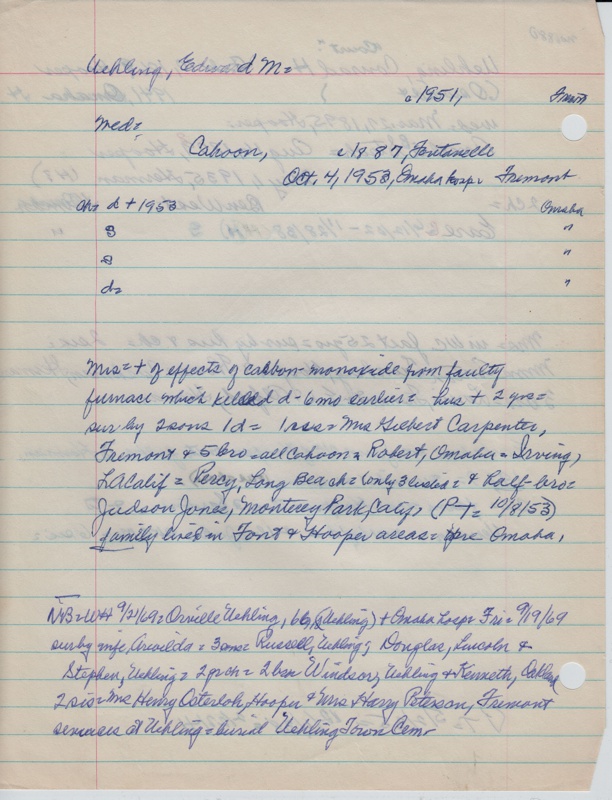 Uehling, Edward M=
c1951, Fremont
med=
Cahoon, c1887, Fontanelle
Oct. 4, 1953, Omaha hosp= Fremont
ch= d + 1953 Omaha
s "
s
d= "
Mrs= + of effects of carbon-monoxide from faulty
furnace which killed d - 6 mo earlier = hus + 2 yrs =
sur by 2 sons 1 d = 1 sis = Mrs Gilbert Carpenter,
Fremont & 5 bro = all Cahoon = Robert, Omaha = Irving,
LA Calif = Percy, Long Beach = (only 3 listed = & half-bro =
Judson Jones, Monterey Park, Calif, (FT= 10/8/53)
family lived in Font & Hooper areas = Omaha,
NB = WH 9/21/69 = Orville Uehling, 66, (Uehling) + Omaha hosp = Fri = 9/19/69
sur by wife, = 3 sons = Russell, Uehling; Douglas, Lincoln &
Stephen, Uehling = 2 gr ch = 2 bro Windsor, Uehling & Kenneth, Oakland
2 sis = Mrs Henry Osterloh, Hooper & Mrs Harry Peterson, Fremont
services at Uehling = burial Uehling Town Cem=